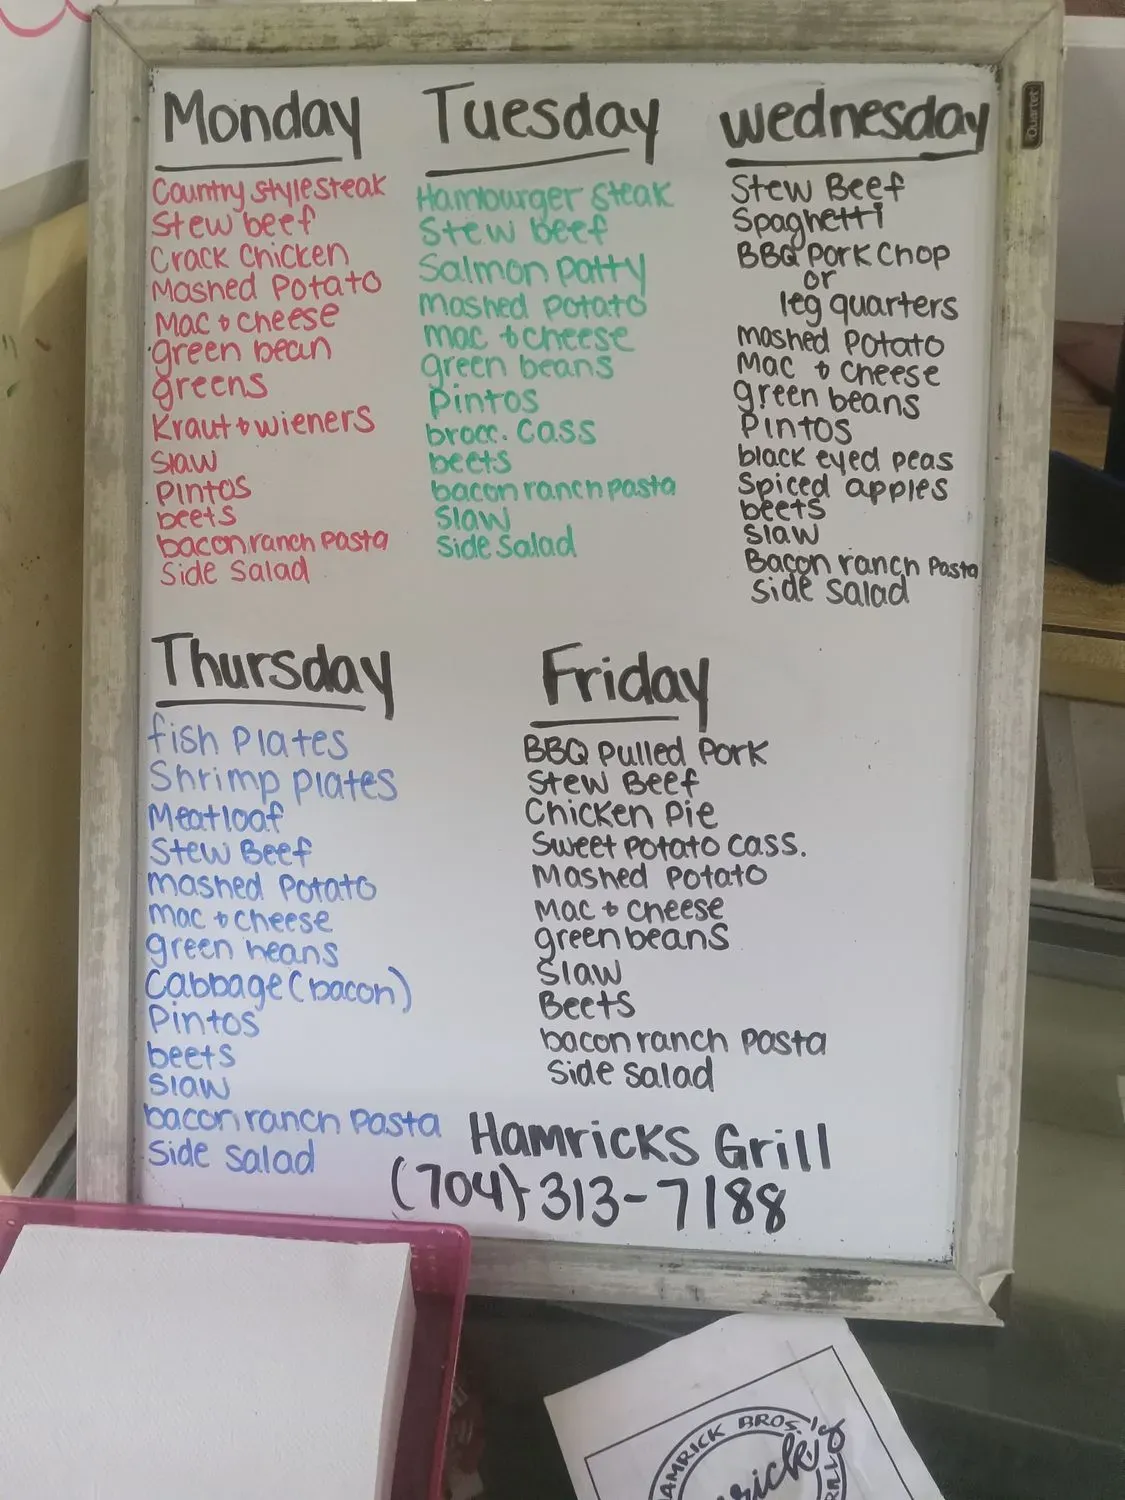 Monday
Country style steak
Stew beef
Crack Chicken
Mashed Potato
Mac & cheese
green bean
greens
Kraut & wieners
Slaw
Pintos
beets
bacon ranch Pasta
Side Salad
Tuesday
Hamburger steak
Stew beef
Salmon patty
mashed potato
mac & cheese
green beans
Pintos
brocc. Cass
beets
bacon ranch pasta
Slaw
Side Salad
Wednesday
Stew Beef
Spaghetti
BBQ Pork Chop
or
leg quarters
mashed Potato
Mac & cheese
green beans
Pintos
black eyed peas
Spiced apples
beets
Slaw
Bacon ranch Pasta
Side Salad
Thursday
fish Plates
Shrimp Plates
Meatloaf
Stew Beef
mashed Potato
mac & cheese
green beans
Cabbage (bacon)
Pintos
beets
Slaw
bacon ranch Pasta
Side Salad
Friday
BBQ Pulled Pork
Stew Beef
Chicken Pie
Sweet Potato Cass.
Mashed Potato
Mac & cheese
green beans
Slaw
Beets
bacon ranch pasta
Side Salad
Hamricks Grill
(704)-313-7188
Quartet
HAMRICK BROS.